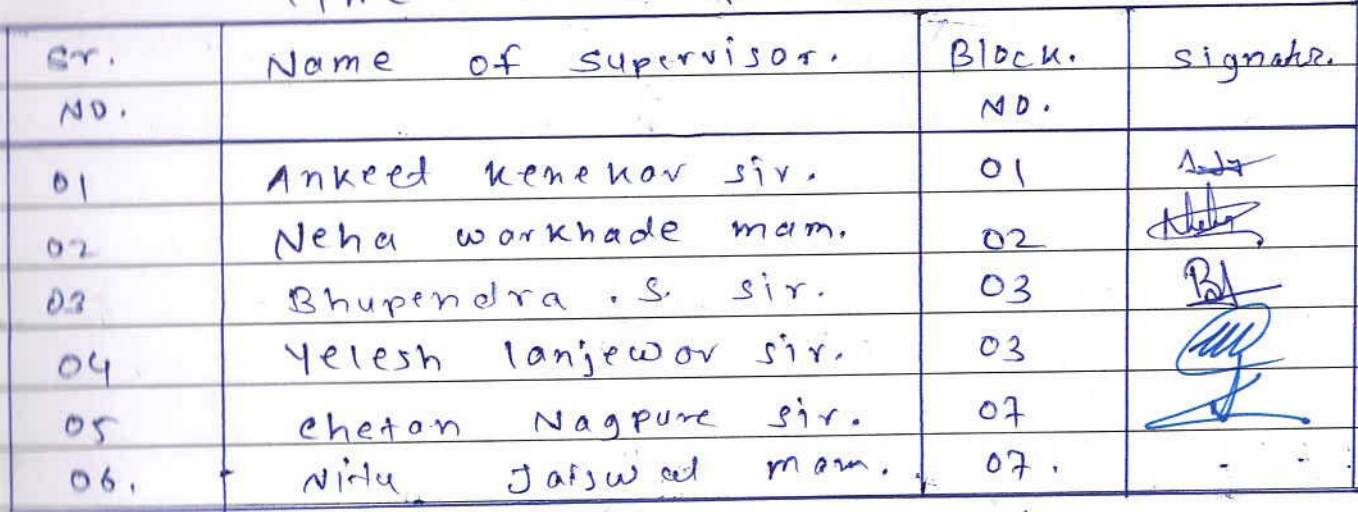 Sr. Name of supervisor. Block. signatr.
No. No.
01 Ankeet Kenekar sir. 01
02 Neha warkhade mam. 02
03 Bhupendra . S. sir. 03
04 Yelesh lanjewar sir. 03
05 chetan Nagpure sir. 07
06. Nitu Jaiswal mam. 07.